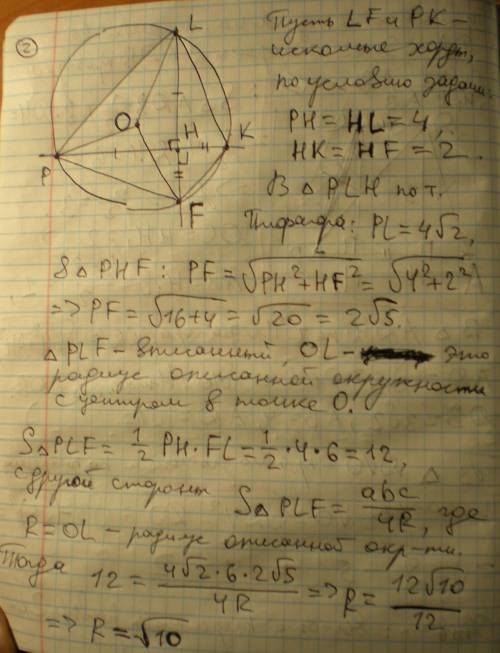 2
L
O
H
K
P
F
Пусть LF и PK –
искомые хорды,
по условию задачи
PH = HL = 4,
HK = HF = 2.
В △ PLH по т.
Пифагора: PL = 4√2,
В △ PHF : PF = √(PH² + HF²) = √(4² + 2²)
=> PF = √(16+4) = √20 = 2√5.
△ PLF – вписанный, OL – это
радиус описанной окружности
с центром в точке O.
S△PLF = 1/2 PH · FL = 1/2 · 4 · 6 = 12,
с другой стороны S△PLF = abc/4R, где
R = OL – радиус описанной окр-ти.
Тогда 12 = (4√2 · 6 · 2√5)/4R => R = 12√10/12
=> R = √10